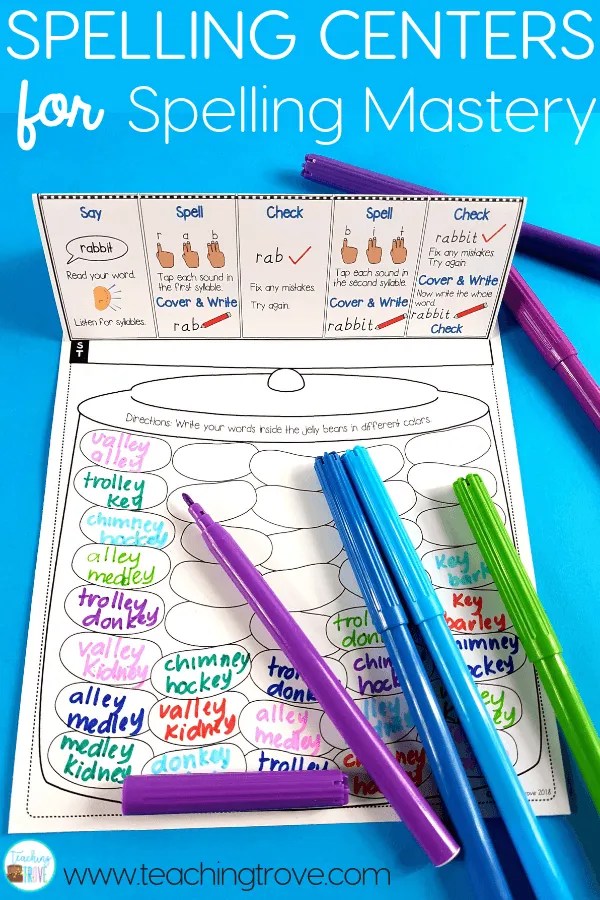 SPELLING CENTERS
for Spelling Mastery
Say
rabbit
Read your word.
Listen for syllables.
Spell
r a b
Tap each sound in
the first syllable.
Cover & Write
rab
Check
rab
Fix any mistakes.
Try again.
Spell
b i t
Tap each sound in
the second syllable.
Cover & Write
rabbit
Check
rabbit
Fix any mistakes.
Try again
Cover & Write
Now write the whole
word.
rabbit
Check
ST
Directions: Write your words inside the jelly beans in different colors.
valley
alley
trolley
key
chimney
hockey
alley
medley
trolley
donkey
valley
kidney
alley
medley
medley
kidney
chimney
hockey
valley
kidney
donkey
alley
medley
trolley
key
barley
2018
Teaching
TROVE
www.teachingtrove.com